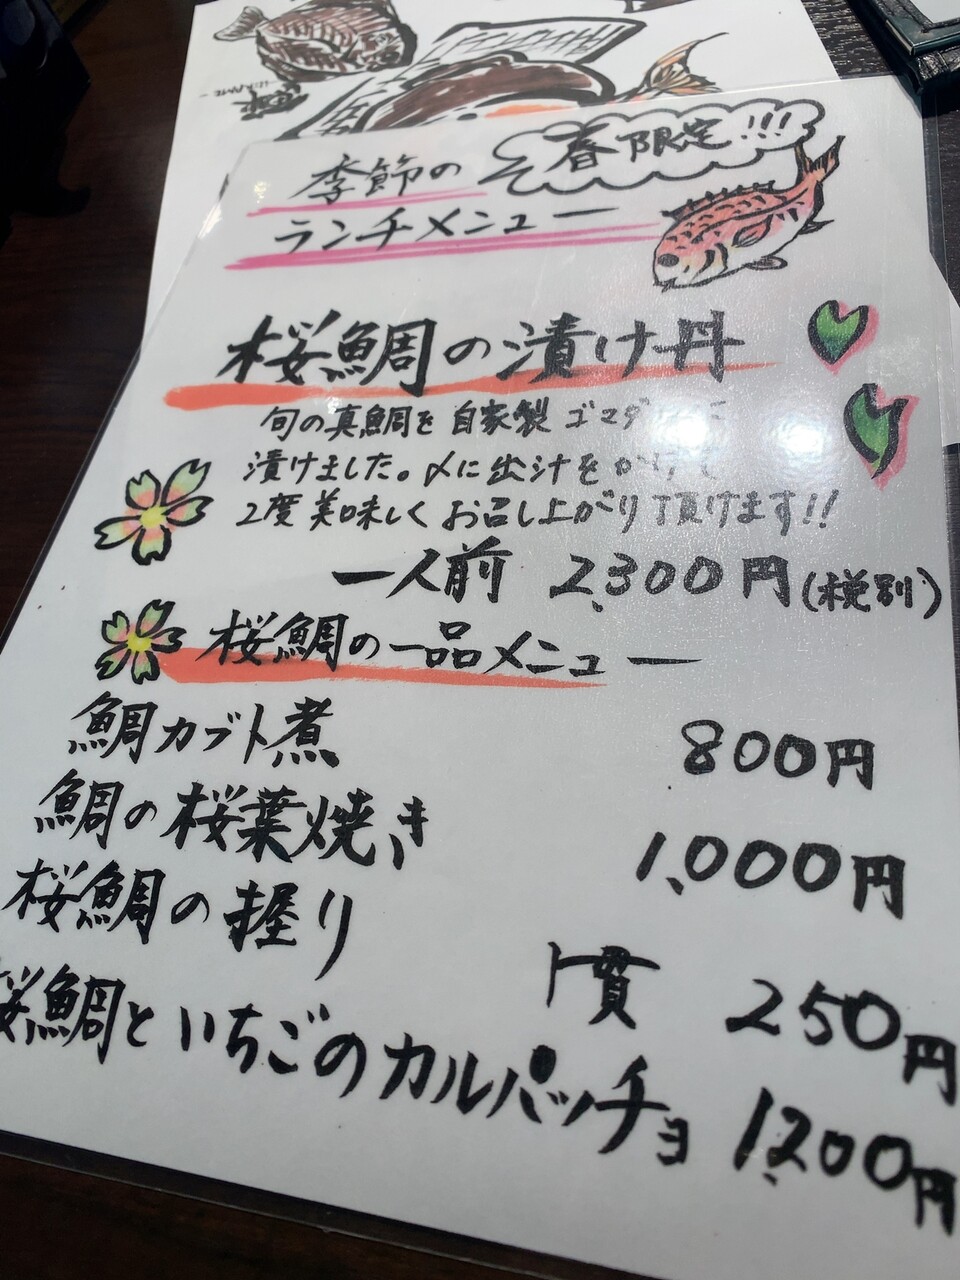 春限定!!!
季節の
ランチメニュー
桜鯛の漬け丼
旬の真鯛を自家製ゴマダレに
漬けました。〆に出汁をかけて
2度美味しくお召し上がり頂けます!!
一人前 2,300円(税別)
桜鯛の一品メニュー
鯛カブト煮 800円
鯛の桜葉焼き 1,000円
桜鯛の握り 1貫 250円
桜鯛といちごのカルパッチョ 1,200円